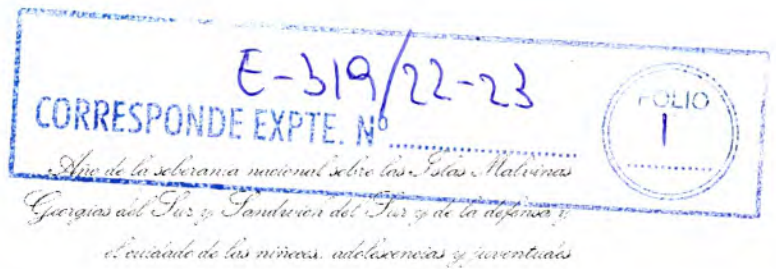 E-319/22-23
CORRESPONDE EXPTE. Nº
FOLIO
1
Año de la soberanía nacional sobre las Islas Malvinas
Georgias del Sur y Sandwich del Sur y de la defensa y
el cuidado de las niñeces, adolescencias y juventudes